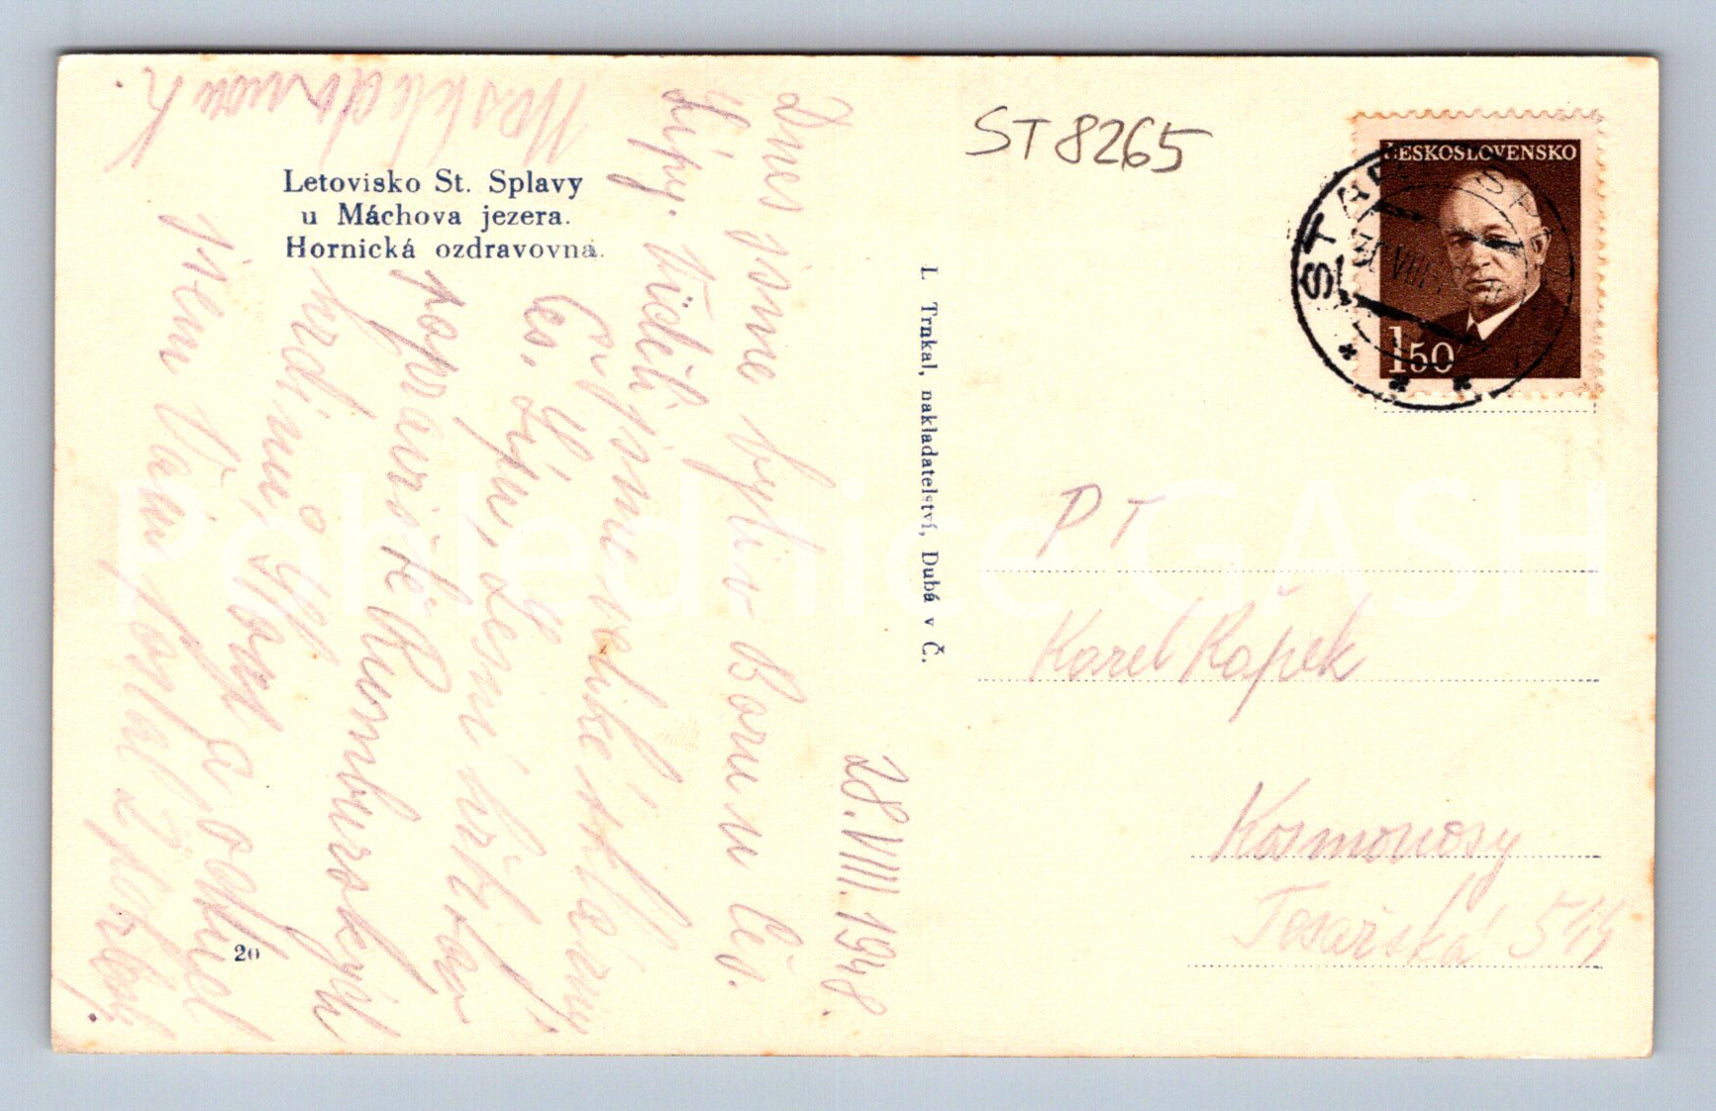 ST 8265
ČESKOSLOVENSKO
1 50
Letovisko St. Splavy
u Máchova jezera.
Hornická ozdravovna.
L. Trnkal, nakladatelství, Dubá v Č.
20
28. VIII. 1948.
Dnes jsme byli v Boru u Čes.
Lípy. Viděli jsme veliké sklárny
Čes. Lípa, Lesní hřbitov
popraviště Rumburských
hrdinů, a odtud
jsem Vám poslal 2
PT
Karel Řápek
Kosmonosy
Tesařská 544
Pohlednice GASH